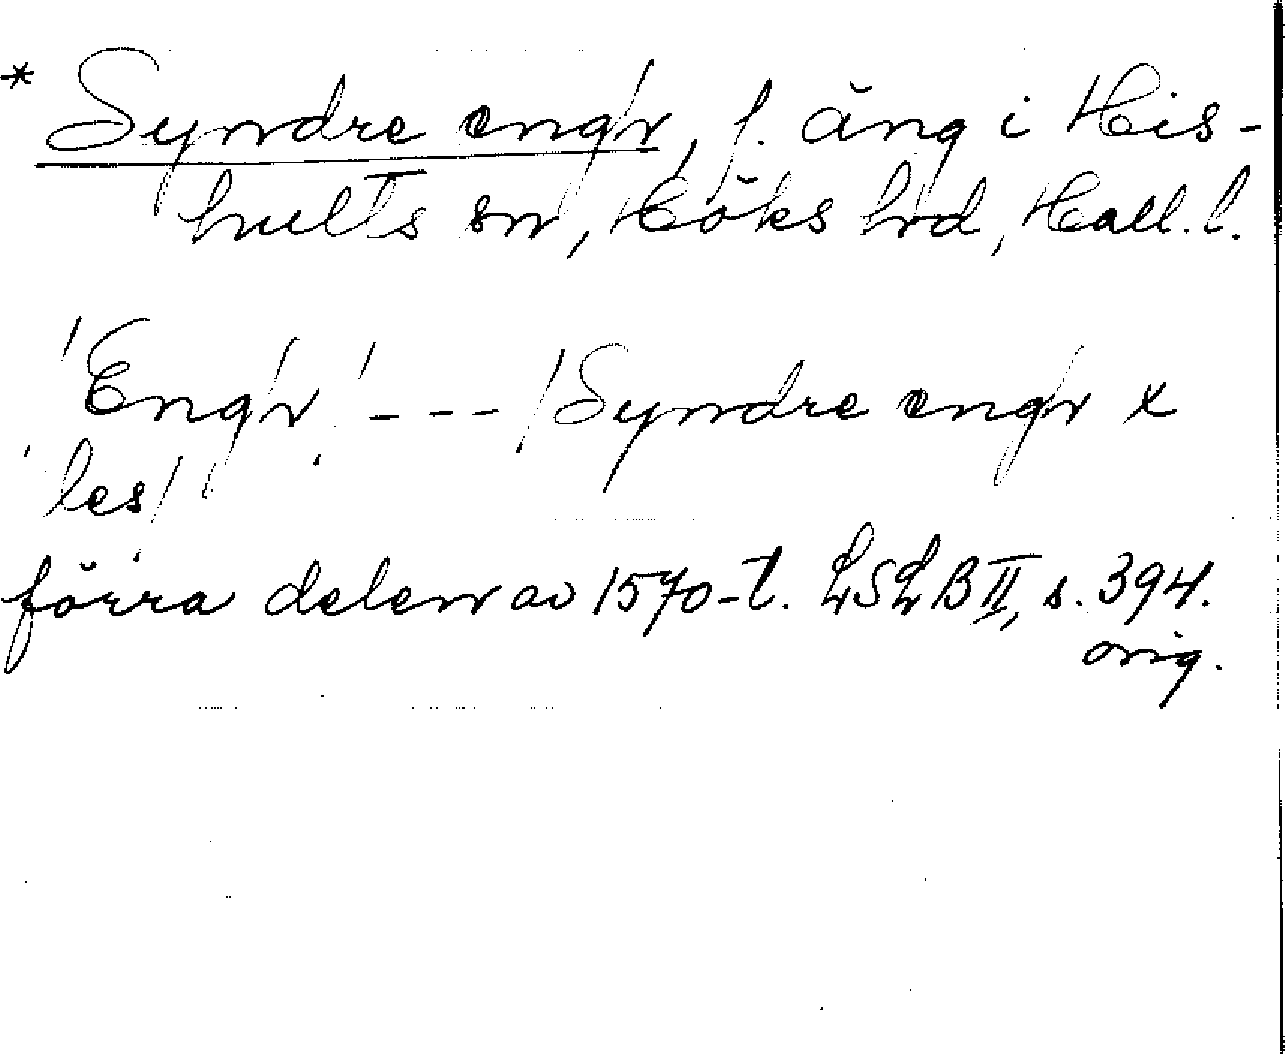 * Syndre engr, f. äng i His-
hults sn, Höks hrd, Hall. l.
/Engr/ - - - /Syndre engr x
les/
förra delen av 1570-t. LSLB II, s. 394.
orig.